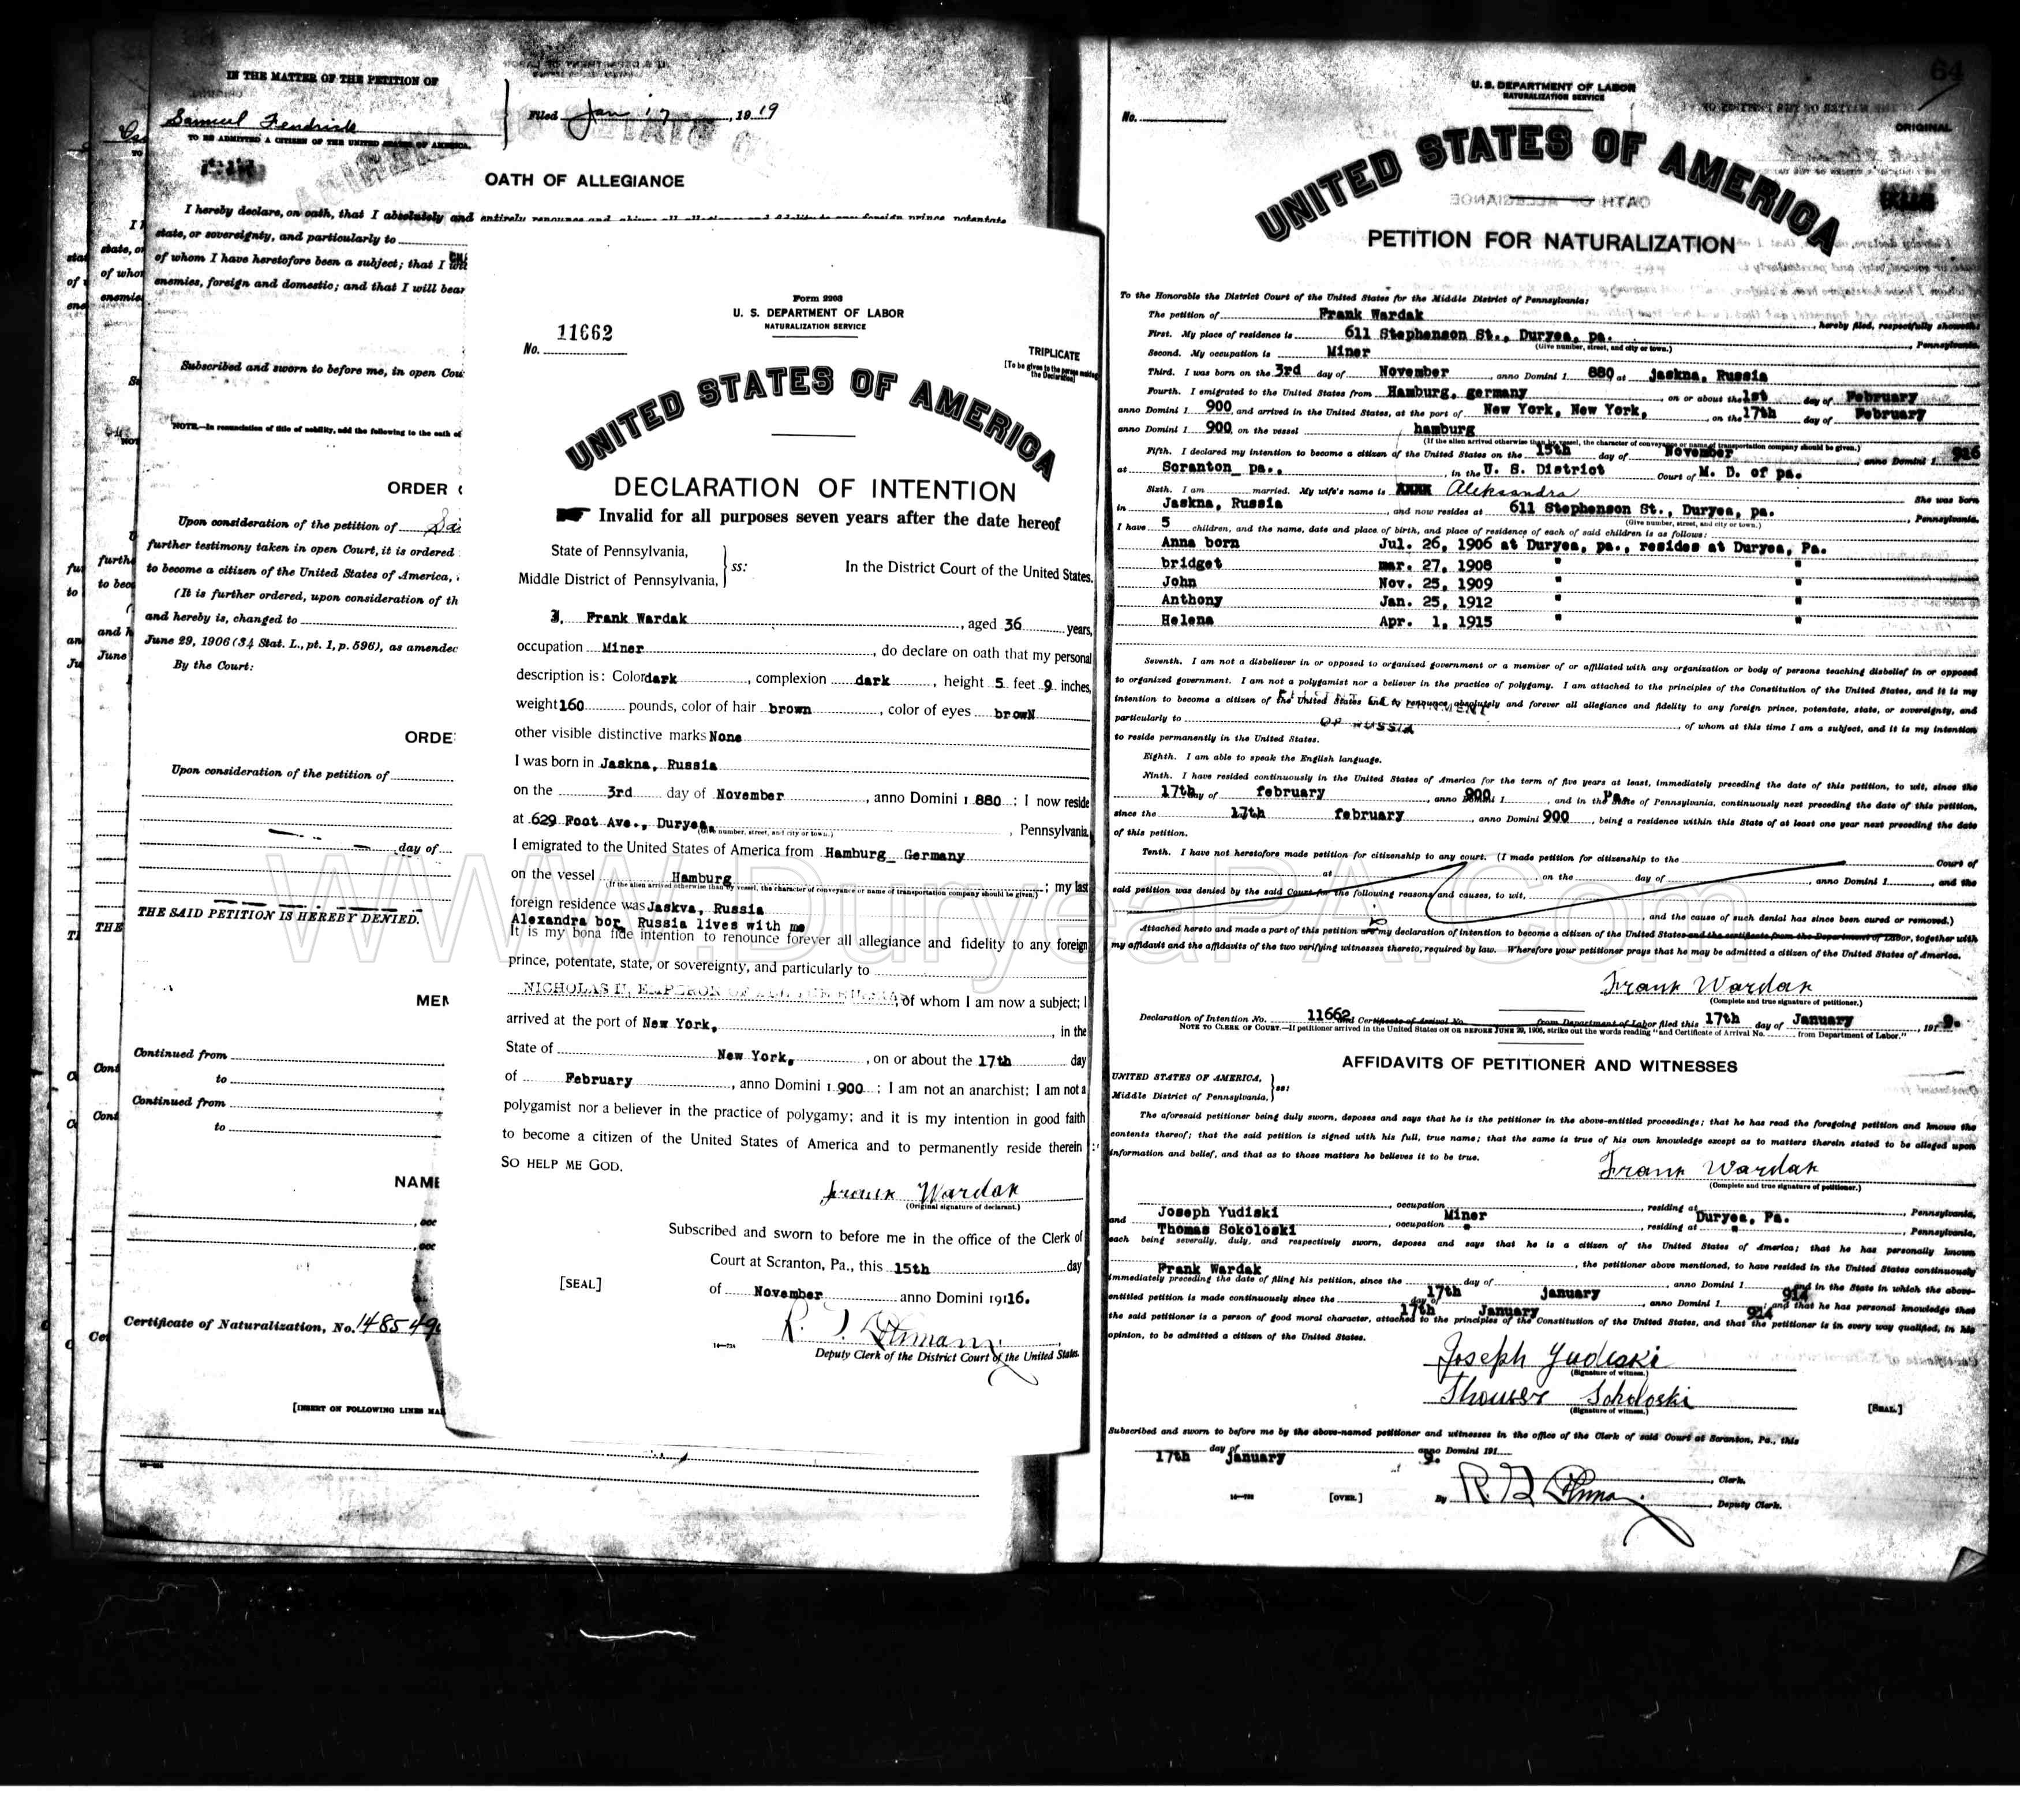 IN THE MATTER OF THE PETITION OF
Samuel Fendrick
TO BE ADMITTED A CITIZEN OF THE UNITED STATES OF AMERICA.
Filed Jan 17, 1919
OATH OF ALLEGIANCE
I hereby declare, on oath, that I absolutely and entirely renounce and abjure all allegiance and fidelity to any foreign prince, potentate,
state, or sovereignty, and particularly to
of whom I have heretofore been a subject; that I
enemies, foreign and domestic; and that I will bear
Subscribed and sworn to before me, in open
NOTE.—In renunciation of title of nobility, add the following to the oath of
ORDER
Upon consideration of the petition of
further testimony taken in open Court, it is ordered
to become a citizen of the United States of America,
(It is further ordered, upon consideration of th
and hereby is, changed to
June 29, 1906 (34 Stat. L., pt. 1, p. 596), as amended
By the Court:
ORDE
Upon consideration of the petition of
day of
THE SAID PETITION IS HEREBY DENIED.
MEM
Continued from
to
Continued from
to
NAME
Certificate of Naturalization, No. 148549
[INSERT ON FOLLOWING LINES
Form 2203
U. S. DEPARTMENT OF LABOR
NATURALIZATION SERVICE
No. 11662
TRIPLICATE
[To be given to the person making the Declaration]
UNITED STATES OF AMERICA
DECLARATION OF INTENTION
Invalid for all purposes seven years after the date hereof
State of Pennsylvania,
Middle District of Pennsylvania, ss:
In the District Court of the United States.
I, Frank Wardak, aged 36 years,
occupation Miner, do declare on oath that my personal
description is: Color dark, complexion dark, height 5 feet 9 inches,
weight 160 pounds, color of hair brown, color of eyes browN
other visible distinctive marks None
I was born in Jaskna, Russia
on the 3rd day of November, anno Domini 1 880; I now reside
at 629 Foot Ave., Duryea, Pennsylvania
(Give number, street, and city or town.)
I emigrated to the United States of America from Hamburg Germany
on the vessel Hamburg; my last
(If the alien arrived otherwise than by vessel, the character of conveyance or name of transportation company should be given.)
foreign residence was Jaskva, Russia
Alexandra bor Russia lives with me
It is my bona fide intention to renounce forever all allegiance and fidelity to any foreign
prince, potentate, state, or sovereignty, and particularly to
NICHOLAS II, EMPEROR OF ALL THE RUSSIAS, of whom I am now a subject; I
arrived at the port of New York, in the
State of New York, on or about the 17th day
of February, anno Domini 1 900; I am not an anarchist; I am not a
polygamist nor a believer in the practice of polygamy; and it is my intention in good faith
to become a citizen of the United States of America and to permanently reside therein:
SO HELP ME GOD.
Frank Wardak
(Original signature of declarant.)
Subscribed and sworn to before me in the office of the Clerk of
Court at Scranton, Pa., this 15th day
[SEAL]
of November anno Domini 19116.
Deputy Clerk of the District Court of the United States.
64
U. S. DEPARTMENT OF LABOR
NATURALIZATION SERVICE
No.
ORIGINAL
UNITED STATES OF AMERICA
PETITION FOR NATURALIZATION
To the Honorable the District Court of the United States for the Middle District of Pennsylvania:
The petition of Frank Wardak, hereby filed, respectfully showeth:
First. My place of residence is 611 Stephenson St., Duryea, pa. Pennsylvania.
(Give number, street, and city or town.)
Second. My occupation is Miner
Third. I was born on the 3rd day of November, anno Domini 1 880 at jaskna, Russia
Fourth. I emigrated to the United States from Hamburg, germany on or about the 1st day of February
anno Domini 1 900, and arrived in the United States, at the port of New York, New York, on the 17th day of February
anno Domini 1 900, on the vessel hamburg
(If the alien arrived otherwise than by vessel, the character of conveyance or name of transportation company should be given.)
Fifth. I declared my intention to become a citizen of the United States on the 15th day of November, anno Domini 1 916
at Scranton pa., in the U. S. District Court of M. D. of pa.
Sixth. I am married. My wife's name is Aleksandra She was born
in Jaskna, Russia, and now resides at 611 Stephenson St., Duryea, pa. Pennsylvania.
(Give number, street, and city or town.)
I have 5 children, and the name, date and place of birth, and place of residence of each of said children is as follows:
Anna born Jul. 26, 1906 at Duryea, pa., resides at Duryea, Pa.
bridget mar. 27, 1908 " "
John Nov. 25, 1909 " "
Anthony Jan. 25, 1912 " "
Helena Apr. 1, 1915 " "
Seventh. I am not a disbeliever in or opposed to organized government or a member of or affiliated with any organization or body of persons teaching disbelief in or opposed
to organized government. I am not a polygamist nor a believer in the practice of polygamy. I am attached to the principles of the Constitution of the United States, and it is my
intention to become a citizen of the United States and to renounce absolutely and forever all allegiance and fidelity to any foreign prince, potentate, state, or sovereignty, and
particularly to PRESENT GOVERNMENT OF RUSSIA, of whom at this time I am a subject, and it is my intention
to reside permanently in the United States.
Eighth. I am able to speak the English language.
Ninth. I have resided continuously in the United States of America for the term of five years at least, immediately preceding the date of this petition, to wit, since the
17th day of february, anno Domini 1 900, and in the State of Pennsylvania, continuously next preceding the date of this petition,
since the 17th february, anno Domini 900, being a residence within this State of at least one year next preceding the date
of this petition.
Tenth. I have not heretofore made petition for citizenship to any court. (I made petition for citizenship to the Court of
at, on the day of, anno Domini 1, and the
said petition was denied by the said Court for the following reasons and causes, to wit,
, and the cause of such denial has since been cured or removed.)
Attached hereto and made a part of this petition are is my declaration of intention to become a citizen of the United States and the certificate from the Department of Labor, together with
my affidavit and the affidavits of the two verifying witnesses thereto, required by law. Wherefore your petitioner prays that he may be admitted a citizen of the United States of America.
Frank Wardak
(Complete and true signature of petitioner.)
Declaration of Intention No. 11662 and Certificate of Arrival No. from Department of Labor filed this 17th day of January, 191 9.
NOTE TO CLERK OF COURT.—If petitioner arrived in the United States ON OR BEFORE JUNE 29, 1906, strike out the words reading "and Certificate of Arrival No. from Department of Labor."
AFFIDAVITS OF PETITIONER AND WITNESSES
UNITED STATES OF AMERICA,
Middle District of Pennsylvania, ss:
The aforesaid petitioner being duly sworn, deposes and says that he is the petitioner in the above-entitled proceedings; that he has read the foregoing petition and knows the
contents thereof; that the said petition is signed with his full, true name; that the same is true of his own knowledge except as to matters therein stated to be alleged upon
information and belief, and that as to those matters he believes it to be true.
Frank Wardak
(Complete and true signature of petitioner.)
Joseph Yudiski, occupation Miner, residing at Duryea, Pa. Pennsylvania,
and Thomas Sokoloski, occupation ", residing at ", Pennsylvania,
each being severally, duly, and respectively sworn, deposes and says that he is a citizen of the United States of America; that he has personally known
Frank Wardak, the petitioner above mentioned, to have resided in the United States continuously
immediately preceding the date of filing his petition, since the 17th day of january, anno Domini 1 914 and in the State in which the above-
entitled petition is made continuously since the 17th day of January, anno Domini 1 914 and that he has personal knowledge that
the said petitioner is a person of good moral character, attached to the principles of the Constitution of the United States, and that the petitioner is in every way qualified, in his
opinion, to be admitted a citizen of the United States.
Joseph Yudiski
(Signature of witness.)
Thomas Sokoloski
(Signature of witness.)
[SEAL.]
Subscribed and sworn to before me by the above-named petitioner and witnesses in the office of the Clerk of said Court at Scranton, Pa., this
17th day of january anno Domini 191 9.
, Clerk.
[OVER.]
By , Deputy Clerk.
WWW.DuryeaPA.Com